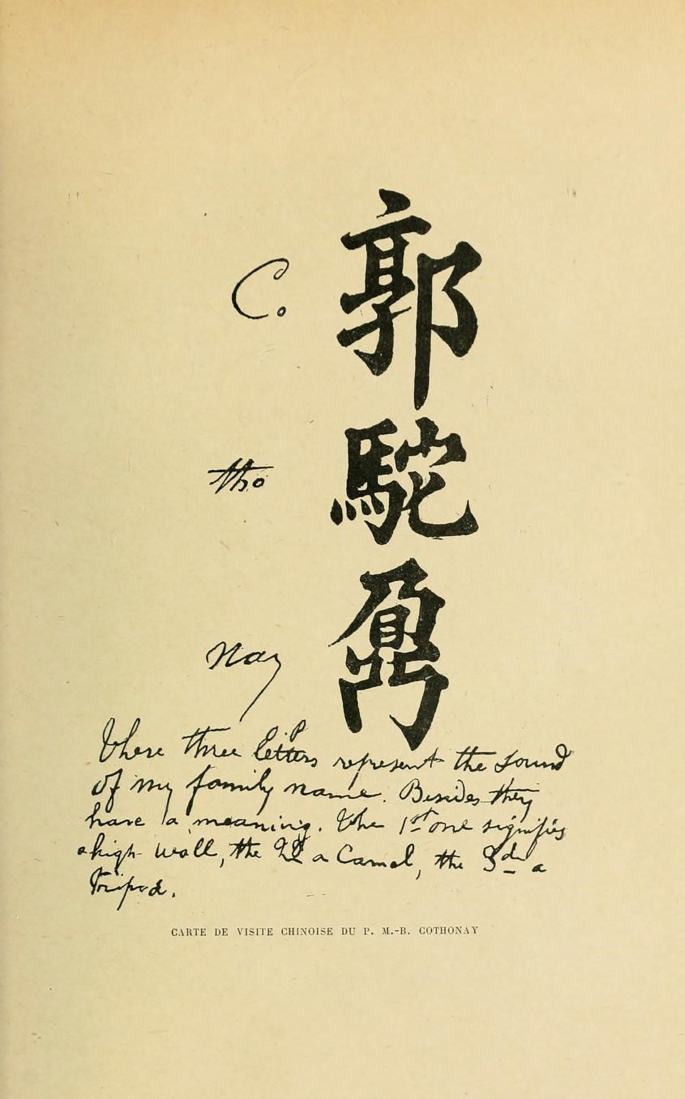 C. 郭
tho 駝
Nay 鼐
These three letters represent the sound
of my family name. Besides they
have a meaning. The 1st one signifies
a high wall, the 2d a Camel, the 3d a
Tripod.
CARTE DE VISITE CHINOISE DU P. M.-B. COTHONAY